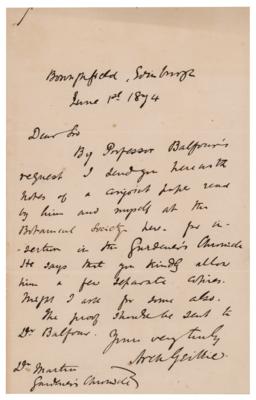 Boroughfield, Edinburgh
June 1st 1874
Dear Sir
By Professor Balfour's
request I send you herewith
notes of a conjoint paper read
by him and myself at the
Botanical Society here for in-
sertion in the Gardener's Chronicle
He says that you kindly allow
him a few separate copies.
May I ask for some also.
The proof should be sent to
Dr Balfour.
Yours very truly
Arch Geikie
Dr Masters
Gardener's Chronicle